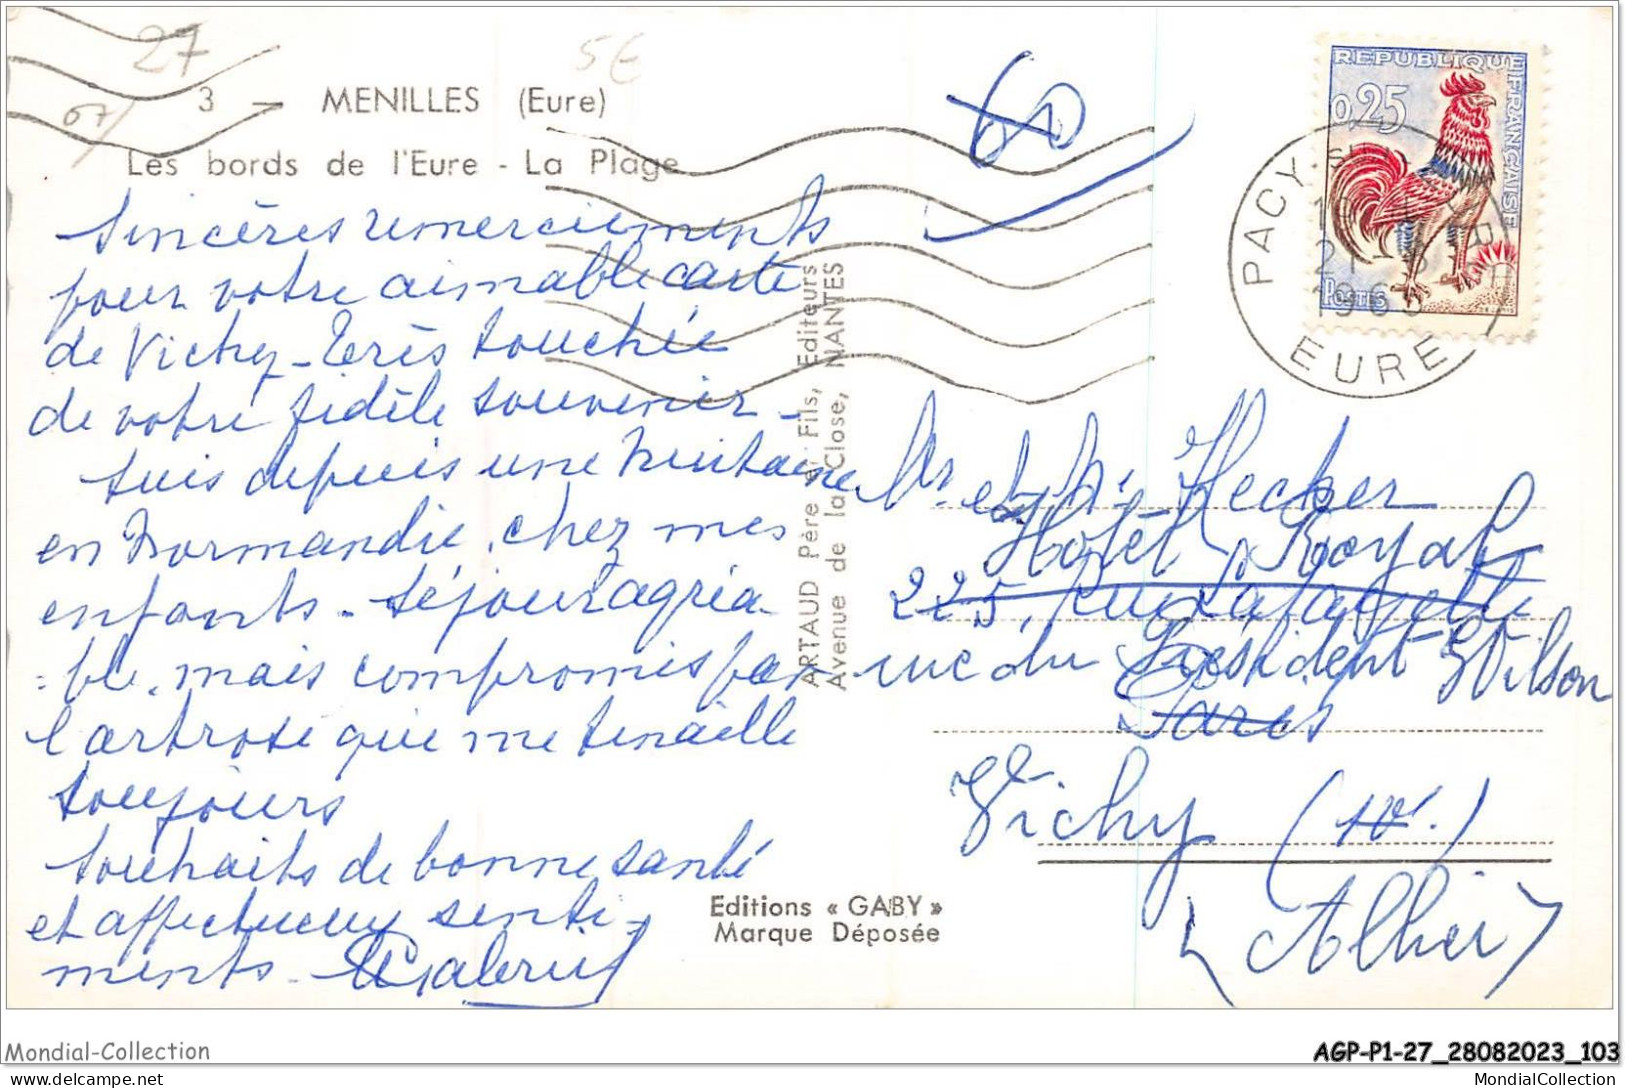 27
5€
67
3 — MENILLES (Eure)
Les bords de l'Eure - La Plage
60
REPUBLIQUE FRANÇAISE
0,25
POSTES
PACY-S
21
196
EURE
Sincères remerciements
pour votre aimable carte
de Vichy - Très touchée
de votre fidèle souvenir -
Suis depuis une huitaine
en Normandie, chez mes
enfants - Séjour agréa-
-ble, mais compromis par
l'arthrose qui me tenaille
toujours
Souhaits de bonne santé
et affectueux senti-
ments -
ARTAUD Père et Fils, Editeurs
Avenue de la Close, NANTES
Mr et Me Hecker
Hôtel Royal
225, rue Lafayette
rue du Président Wilson
Paris
Vichy (10e)
(Allier)
Editions « GABY »
Marque Déposée
Mondial-Collection
AGP-P1-27_28082023_103
delcampe.net
MondialCollection